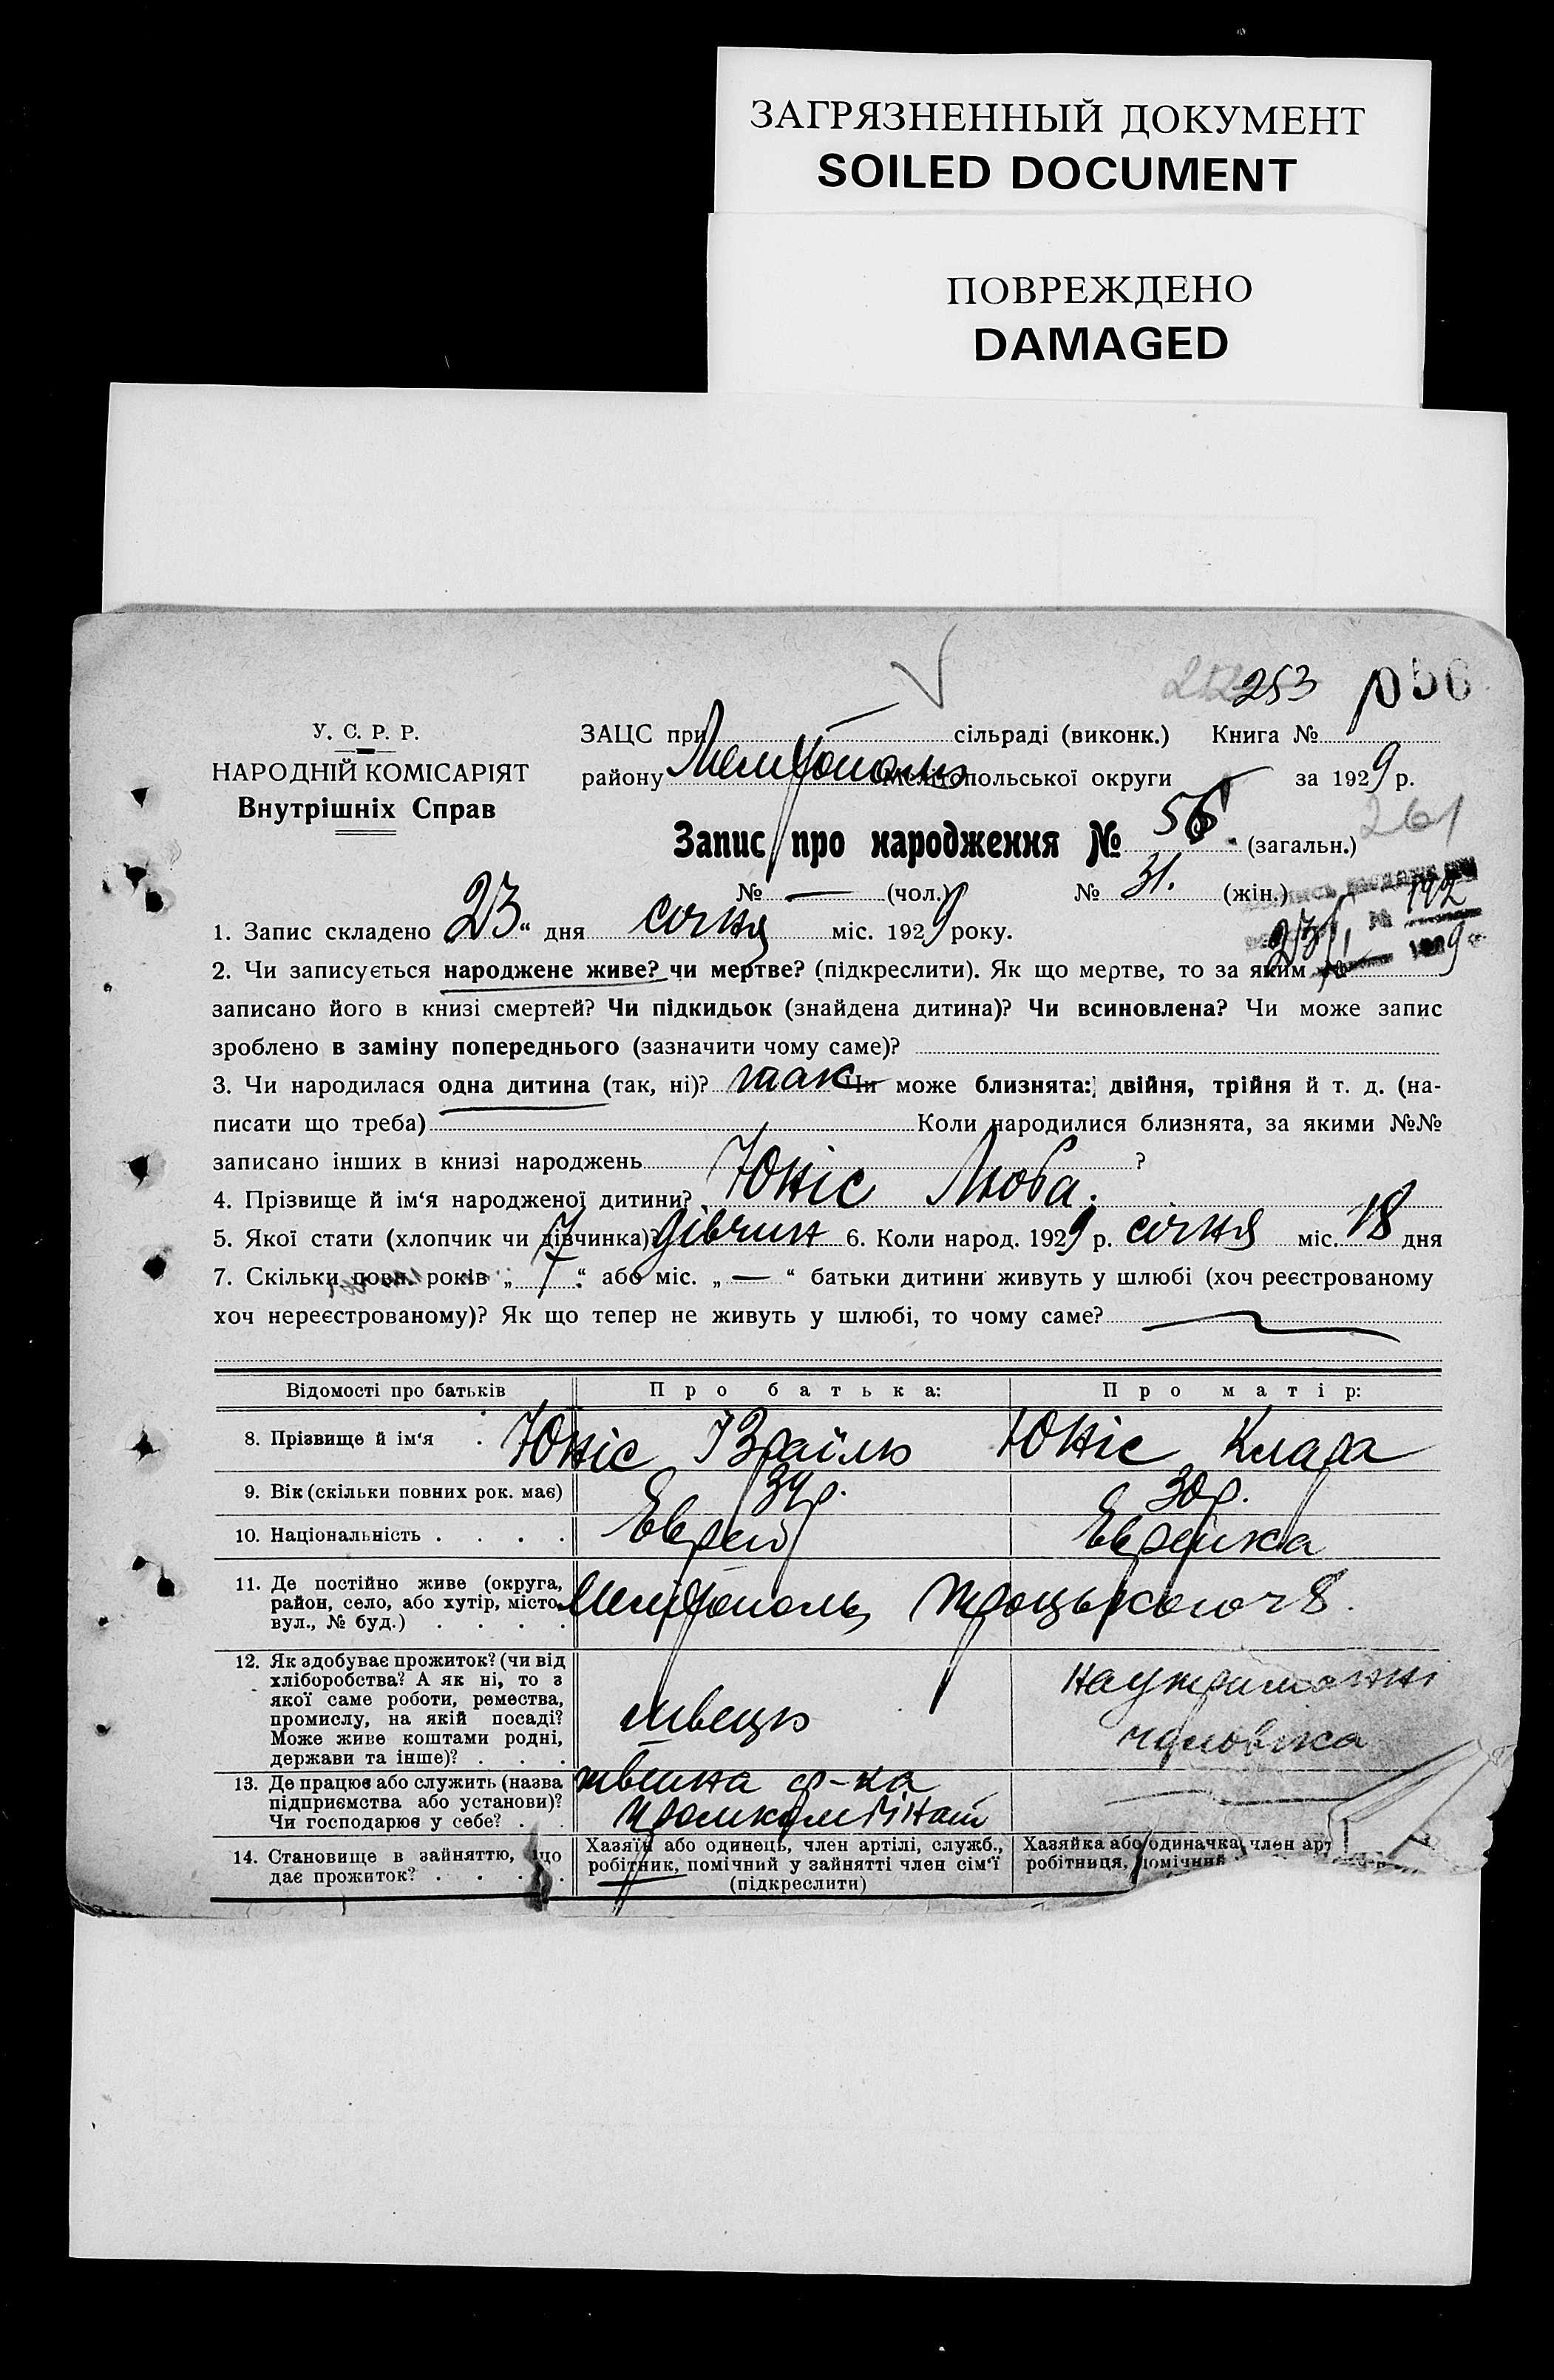 ЗАГРЯЗНЕННЫЙ ДОКУМЕНТ
SOILED DOCUMENT
ПОВРЕЖДЕНО
DAMAGED
253
056
У. С. Р. Р.
НАРОДНІЙ КОМІСАРІЯТ
Внутрішніх Справ
ЗАЦС при — сільраді (виконк.) Книга №
району Мелітополь Мелітопольської округи за 1929 р.
261
Запис про народження № 56. (загальн.)
№ — (чол.) № 31. (жін.)
1. Запис складено 23 “ дня січня міс. 1929 року.
2. Чи записується народжене живе? чи мертве? (підкреслити). Як що мертве, то за яким №
записано його в книзі смертей? Чи підкидьок (знайдена дитина)? Чи всиновлена? Чи може запис
зроблено в заміну попереднього (зазначити чому саме)?
3. Чи народилася одна дитина (так, ні)? так Чи може близнята: двійня, трійня й т. д. (на-
писати що треба) Коли народилися близнята, за якими №№
записано інших в книзі народжень ?
4. Прізвище й ім‘я народженої дитини? Юніс Люба.
5. Якої стати (хлопчик чи дівчинка)? дівчин 6. Коли народ. 1929 р. січня міс. 18 дня
7. Скільки повн. років „ 7 “ або міс. „ — “ батьки дитини живуть у шлюбі (хоч реєстрованому
хоч нереєстрованому)? Як що тепер не живуть у шлюбі, то чому саме?
Відомості про батьків
Про батька:
Про матір:
8. Прізвище й ім‘я .
Юніс Ізраїль
Юніс Клара
9. Вік (скільки повних рок. має)
34 р.
30 р.
10. Національність . . . .
Еврей
Еврейка
11. Де постійно живе (округа,
район, село, або хутір, місто,
вул., № буд.) . . . .
Мелітополь, Троцького ч 8.
12. Як здобуває прожиток? (чи від
хліборобства? А як ні, то з
якої саме роботи, ремества,
промислу, на якій посаді?
Може живе коштами родні,
держави та інше)? . . .
швець
на утриманні
чоловіка
13. Де працює або служить (назва
підприємства або установи)?
Чи господарює у себе? . .
швейна ф-ка
Промкомбінат
14. Становище в зайняттю, що
дає прожиток? . . . .
Хазяїн або одинець, член артілі, служб.,
робітник, помічний у зайнятті член сім‘ї
(підкреслити)
Хазяйка або одиначка, член арт
робітниця, помічний